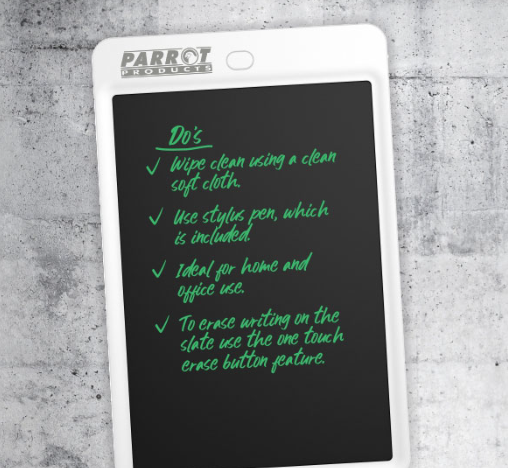 PARROT
PRODUCTS
Do's
✓ Wipe clean using a clean
soft cloth.
✓ Use stylus pen, which
is included.
✓ Ideal for home and
office use.
✓ To erase writing on the
slate use the one touch
erase button feature.